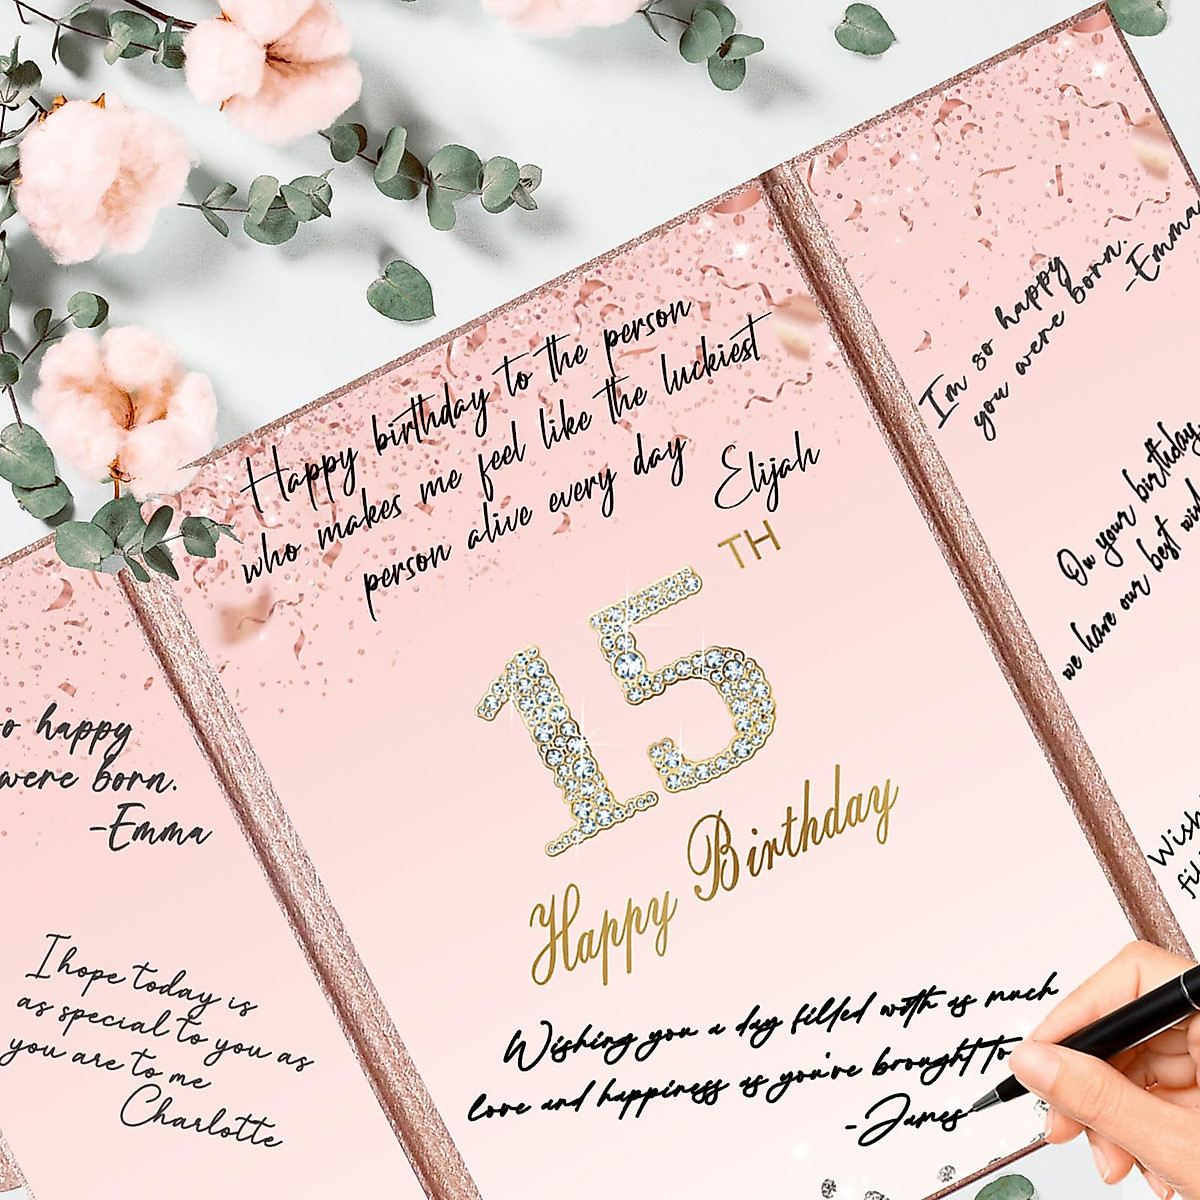 Happy birthday to the person
who makes me feel like the luckiest
person alive every day
Elijah
TH
15
Happy Birthday
Wishing you a day filled with as much
love and happiness as you've brought to
-James
so happy
were born.
-Emma
I hope today is
as special to you as
you are to me
Charlotte
I'm so happy
you were born.
-Emma
On your birthday,
we have our best
Wish
fil